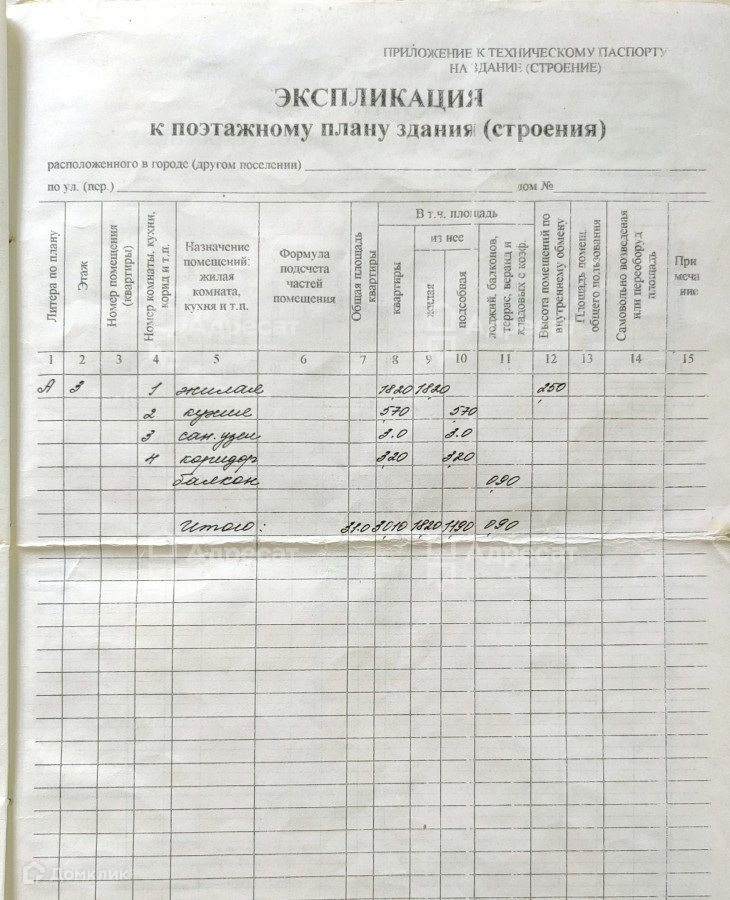 ПРИЛОЖЕНИЕ К ТЕХНИЧЕСКОМУ ПАСПОРТУ
НА ЗДАНИЕ (СТРОЕНИЕ)
ЭКСПЛИКАЦИЯ
к поэтажному плану здания (строения)
расположенного в городе (другом поселении)
по ул. (пер.) дом №
Литера по плану
Этаж
Номер помещения (квартиры)
Номер комнаты, кухни, корид и т.п.
Назначение помещений: жилая комната, кухня и т.п.
Формула подсчета частей помещения
Общая площадь квартиры
В т.ч. площадь
квартиры
из нее
жилая
подсобная
лоджий, балконов, террас, веранд и кладовых с коэф.
Высота помещений по внутреннему обмеру
Площадь помещ. общего пользования
Самовольно возведеная или переоборуд площадь
При меча ние
1 2 3 4 5 6 7 8 9 10 11 12 13 14 15
А 3 1 жилая 18,20 18,20 2,50
2 кухня 5,70 5,70
3 сан.узел 3.0 3.0
4 коридор 3,20 3,20
балкон 0,90
Итого: 31.0 30,10 18,20 11,90 0,90
Адресат
Адресат
Адресат
Домклик